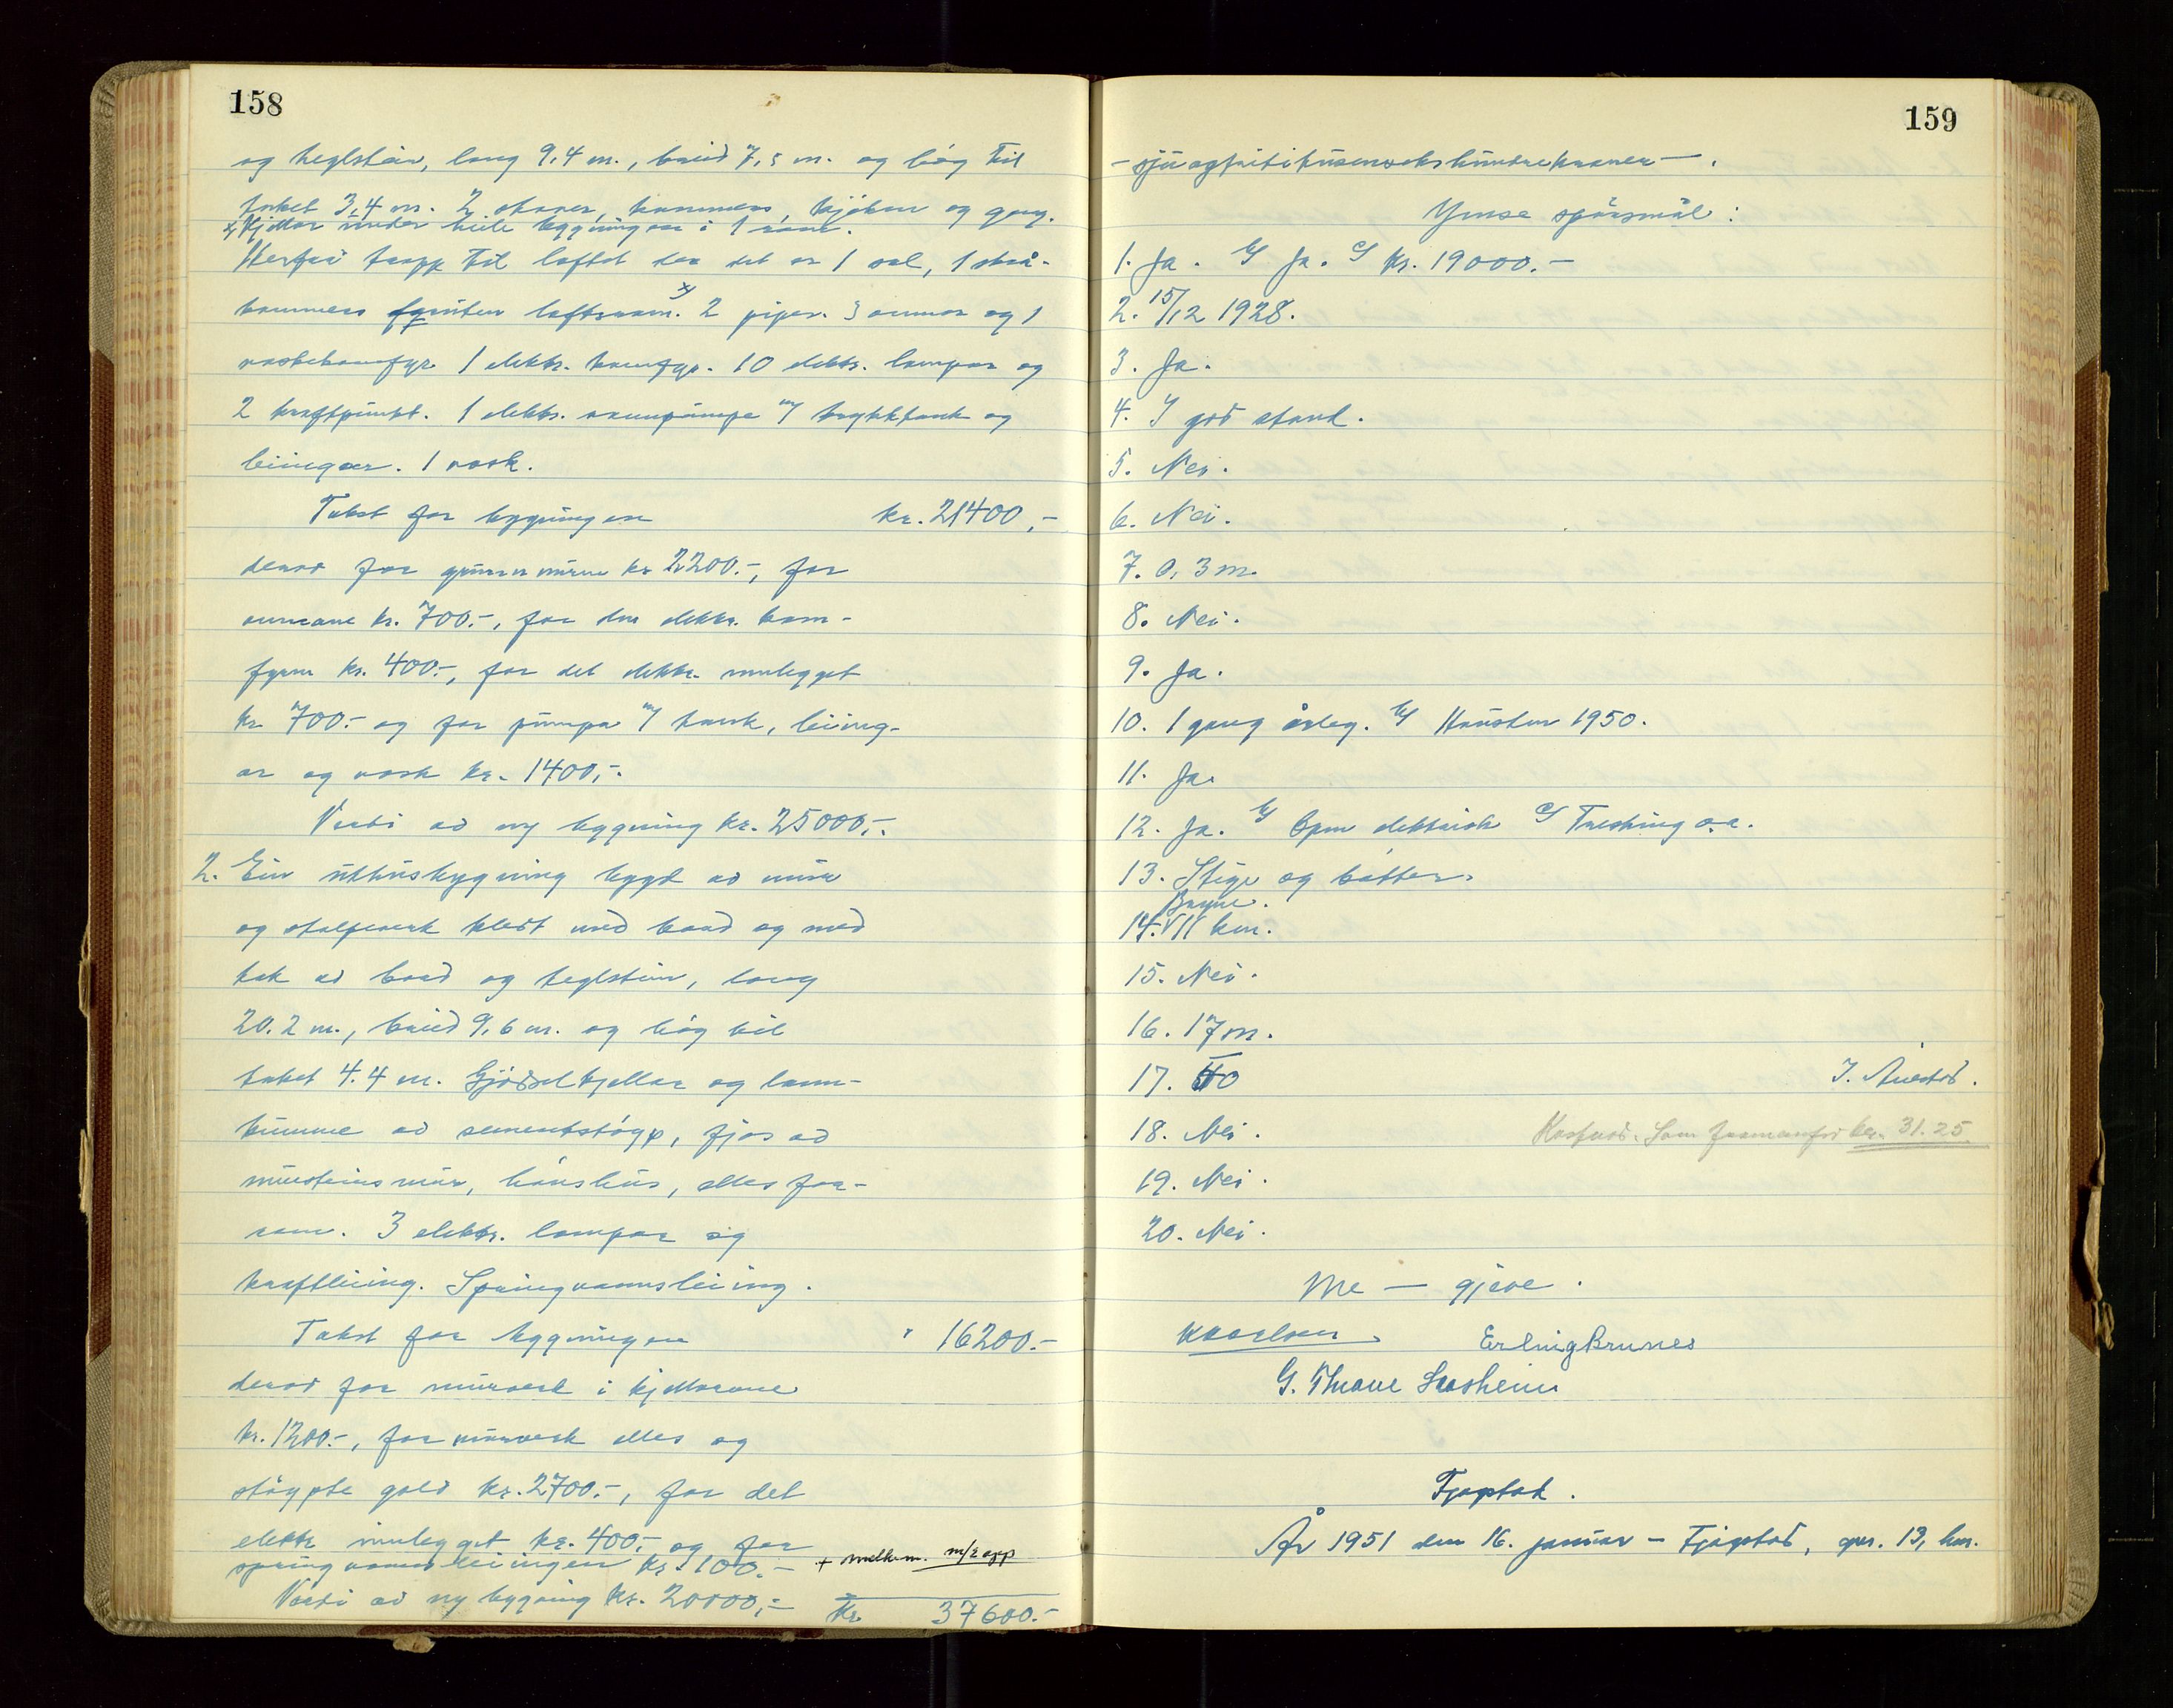 158
og teglstein, lang 9,4 m., breid 7,5 m. og høg til
taket 3,4 m. 2 stover, kammers, kjøken og gang.
x) Kjellar under heile bygningen i 1 rom.
Herfrå trapp til loftet der det er 1 sal, 1 små-
kammers forutan loftsrom. x) 2 piper. 3 omnar og 1
vaskekomfyr. 1 elektr. komfyr. 10 elektr. lampor og
2 kraftpunkt. 1 elektr. vannpumpe m/ trykktank og
leiingar. 1 vask.
Takst for bygningen kr. 21400,-
derav for grunnmuren kr 2200.-, for
omnane kr. 700.-, for den elektr. kom-
fyren kr. 400.-, for det elektr. innlegget
kr 700.- og for pumpa m/ tank, leiing-
ar og vask kr. 1400,-.
Verdi av ny bygning kr. 25000,-.
2. Ein uthusbygning bygt av mur
og stolpeverk kledt med bord og med
tak av bord og teglstein, lang
20.2 m., breid 9,6 m. og høg til
taket 4.4 m. Gjødselkjellar og land-
kumme av sementstøyp, fjøs av
mursteinsmur, hønshus, elles for-
rom. 3 elektr. lampor og
kraftleiing. Springvannsleiing.
Takst for bygningen " 16200.-
derav for murverk i kjellarane
kr. 1200.-, for murverk elles og
støypte golv kr. 2700.-, for det
elektr innlegget kr. 400,- og for
springvannsleiingen kr. 100.- + melkem. m/2 app
Verdi av ny bygning kr. 20000,- Kr 37600.-
159
- sjuogtrittitusenseks hundre kroner -.
Ymse spørsmål:
1. Ja. b/ Ja. c/ kr. 19000.-
2. 15/12 1928.
3. Ja.
4. I god stand.
5. Nei.
6. Nei.
7. 0,3 m.
8. Nei.
9. Ja.
10. 1 gang årleg. b/ Hausten 1950.
11. Ja.
12. Ja. b/ Open elektrisk c/ Tresking o.a.
13. Stige og bøtter.
Bryne.
14. V 11 km.
15. Nei.
16. 17 m.
17. II0 I. Auestad.
18. Nei. Kasserd. Som framanfor kr. 31.25
19. Nei.
20. Nei.
Me - gjeve.
Erling Brunes
G. Thrane Hasheim
Fjogstad.
År 1951 den 16. januar - Fjogstad, gnr. 13, bnr.